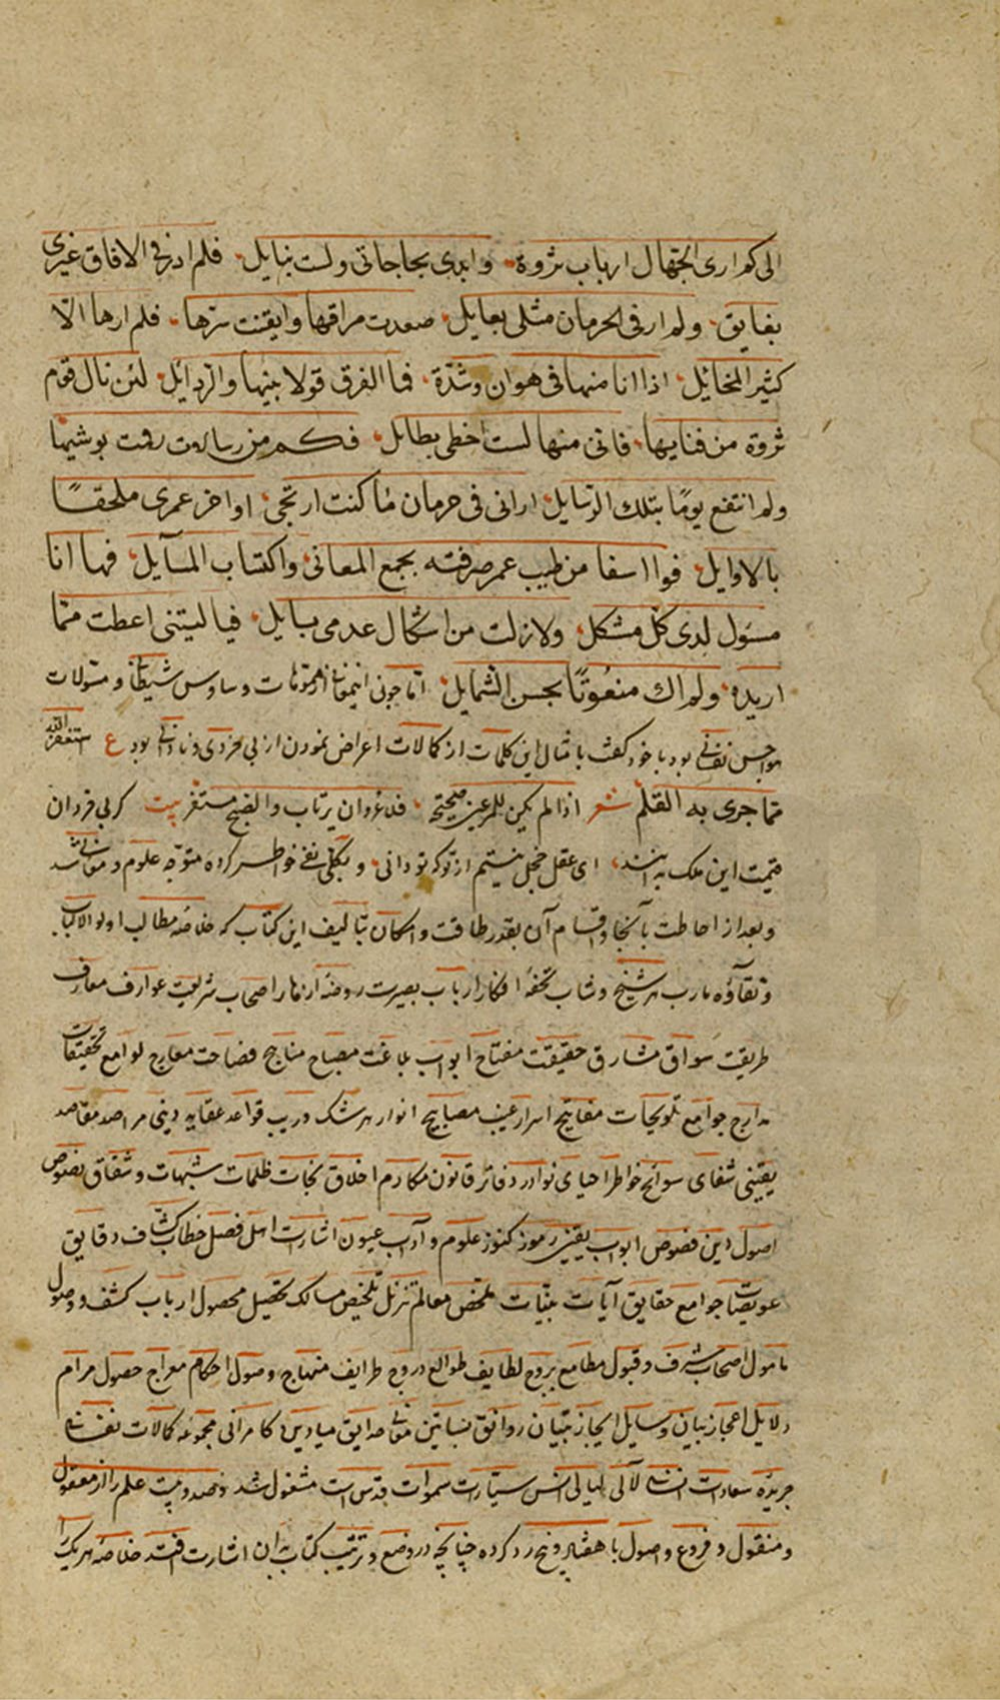 الی کم اری الجهال ارباب ثروة وابدی بحاجاتی ولست بنایل فلم ادر فی الافاق غیری
بفایق ولم ار فی الحرمان مثلی بعایل صعدت مراقیها وایقنت سرها فلم ارها الّا
کثیر المخائل اذا انا منها فی هوان وشدّة فما الفرق قولا بینها والرذائل لئن نال قوم
ثروة من فنایها فانی منها لست احظی بطائل فکم من رسالات رقت بوشیها
ولم انتفع یومًا بتلک الرسایل ارانی فی حرمان ما کنت ارتجی اواخر عمری ملحقًا
بالاوایل فوا اسفا من طیب عمر صرفته بجمع المعانی واکتساب المسآیل فها انا
مسؤل لدی کلّ مشکل ولازلت من اشکال عدمی بسایل فیا لیتنی اعطت ممّا
اریده ولم اک منعوتًا بحسن الشمایل اما چون این از و وساوس شیطانی و مسولات
هواجس نفسانی بود با خود گفت بامثال این کلمات از کمالات اعراض نمودن از بی خردی و نادانی بود ع استغفر الله
ممّا جری به القلم شعر اذا لم یکن للمرء عین صحیحة فلا غرو ان یرتاب والصبح مسفر بیت گر بی خردان
قیمت این ملک ندانند ای عقل خجل نیستم از تو که تو دانی و بکلی نفی خواطر کرده متوجه علوم و معانی شد
و بعد از احاطت بانحا و اقسام آن بقدر طاقت و امکان بتالیف این کتاب که خلاصه مطالب اولو الالباب
و نقاوه مارب هر شیخ و شاب تحفهٔ افکار ارباب بصیرت روضهٔ ازهار اصحاب شریعت عوارف معارف
طریقت سواق مشارق حقیقت مفتاح ابواب بلاغت مصباح مناهج فصاحت معارج لوامع تحقیقات
مدارج جوامع تلویحات مفاتیح اسرار غیب مصابیح انوار هر شک و ریب قواعد عقاید دینی مراصد مقاصد
یقینی شفای سوانح خواطر احیای نوادر دفاتر قانون مکارم اخلاق نجات ظلمات شبهات و شقاق نصوص
اصول دین فصوص ابواب یقین رموز کنوز علوم و آداب عیون اشارات اهل فصل خطاب کشاف دقایق
عویصات جوامع حقایق آیات بیّنات ملخص معالم تنزیل تلخیص مسالک تحصیل محصول ارباب کشف و وصول
مامول اصحاب شرف و قبول مطامع بروج لطایف طوالع دروج طرایف منهاج وصول احکام معراج حصول مرام
دلایل اعجاز بیان وسایل ایجاز تبیان رواتق بساتین معانی حدایق میادین کامرانی مجموعهٔ کمالات نفسانی
جریدهٔ سعادات انسانی لآلی لیالی انس سیّارات سموات قدس است مشغول شد و صد و بیست علم را از معقول
و منقول و فروع و اصول با هفتاد و پنج رد کرده چنانچه در وضع و ترتیب کتاب بدان اشارت افتد خلاصه هر یک را